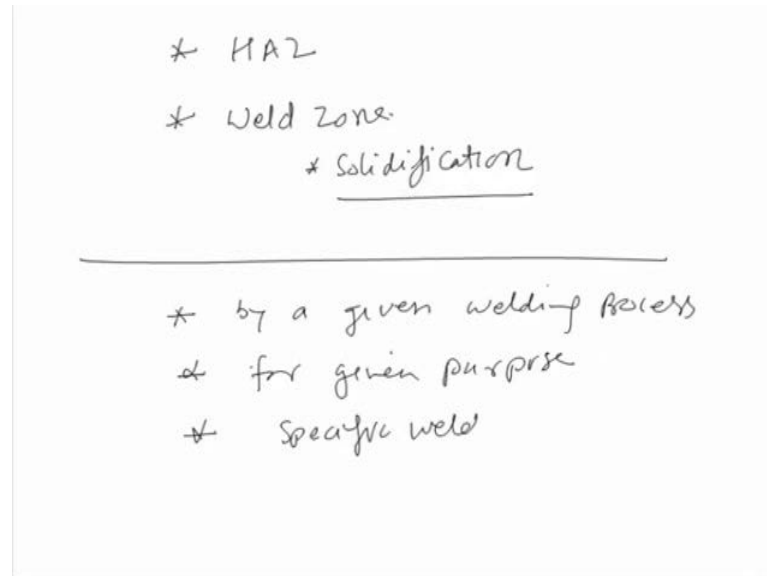 * HAZ
* Weld zone.
* Solidification
* by a given welding process
* for given purpose
* Specific weld